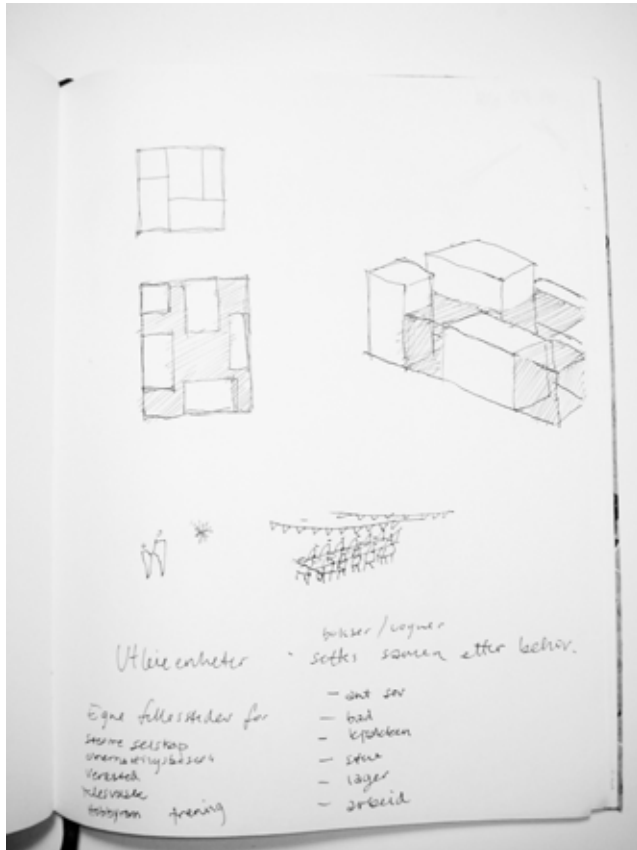 bokser/vogner
Utleieenheter - settes samen etter behov.
Egne fellessteder for
større selskap
verksted
klesvask
hobbyrom trening
- ant sov
- bad
- kjøkken
- stue
- lager
- arbeid